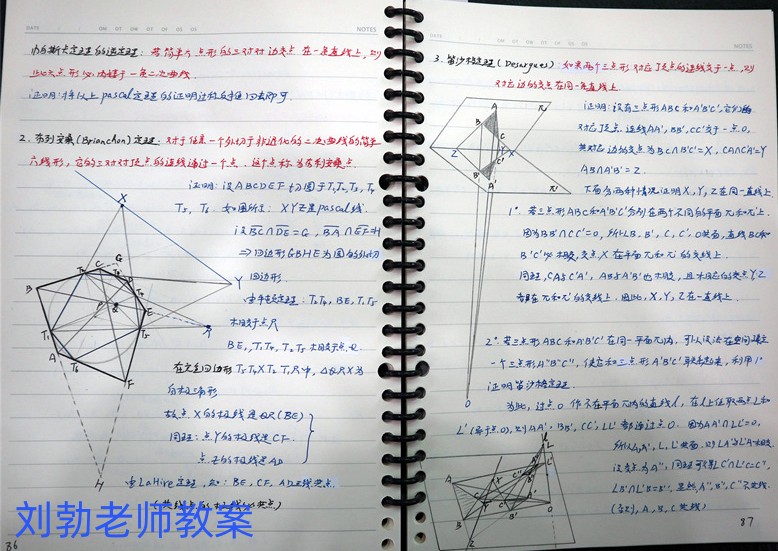 DATE
NOTES
帕斯卡定理的逆定理：若简单六点形的三对对边交点在一条直线上，则
此六点形必内接于一条二次曲线.
证明：将以上pascal定理的证明过程反推回去即可.
2. 布列安桑(Brianchon)定理：对于任意一个外切于非退化的二次曲线的简单
六线形，它的三对对顶点的连线通过一个点. 这个点称为布利安桑点
证明：设ABCDEF切圆于T₁,T₂,T₃,T₄
T₅, T₆. 如图所示：XYZ是pascal线.
设BC∩DE=G, BA∩EF=H
⇒四边形GBHE为圆的外切
四边形.
相交于点R
在完全四边形
自极三角形
故点X的极线是QR(BE)
同理：点Y的极线是CF.
点Z的极线是AD
由LaHire定理，知：BE, CF, AD三线共点.
X
G
Y
B
E
A
F
H
刘勃老师教案
86
NOTES
3. 笛沙格定理(Desargues)：如果两个三点形对应顶点的连线交于一点，则
对应边的交点在同一条直线上.
证明：设有三点形ABC和A'B'C', 它们的
对应顶点连线AA', BB', CC'交于一点O,
其对应边的交点为BC∩B'C'=X, CA∩C'A'=Y
AB∩A'B'=Z.
下面分两种情况证明X, Y, Z在同一直线上.
1°. 若三点形ABC和A'B'C'分别在两个不同的平面π和π'上.
因为BB'∩CC'=O, 所以B, B', C, C', O共面, 直线BC和
B'C'必相交, 交点X在平面π和π'的交线上.
同理, CA与C'A', AB与A'B'也相交, 且相应的交点Y, Z
都在π和π'的交线上. 因此, X, Y, Z在一直线上.
2°. 若三点形ABC和A'B'C'在同一平面π内, 可以设法在空间建立
一个三点形A''B''C'', 使它和三点形A'B'C'联系起来, 利用1°
证明笛沙格定理.
为此, 过点O作不在平面π内的直线l, 在l上任取两点L和
L'(异于点O), 则AA', BB', CC', LL'都通过点O. 因为AA'∩LL'=O,
所以A, A', L, L'共面. 则LA与L'A'相交.
设交点为A'', 同理可得LC∩L'C'=C'',
LB∩L'B'=B''. 显然, A'', B'', C''不共线.
(否则, A, B, C共线)
A
B
C
Z
X
A'
π
π'
O
87